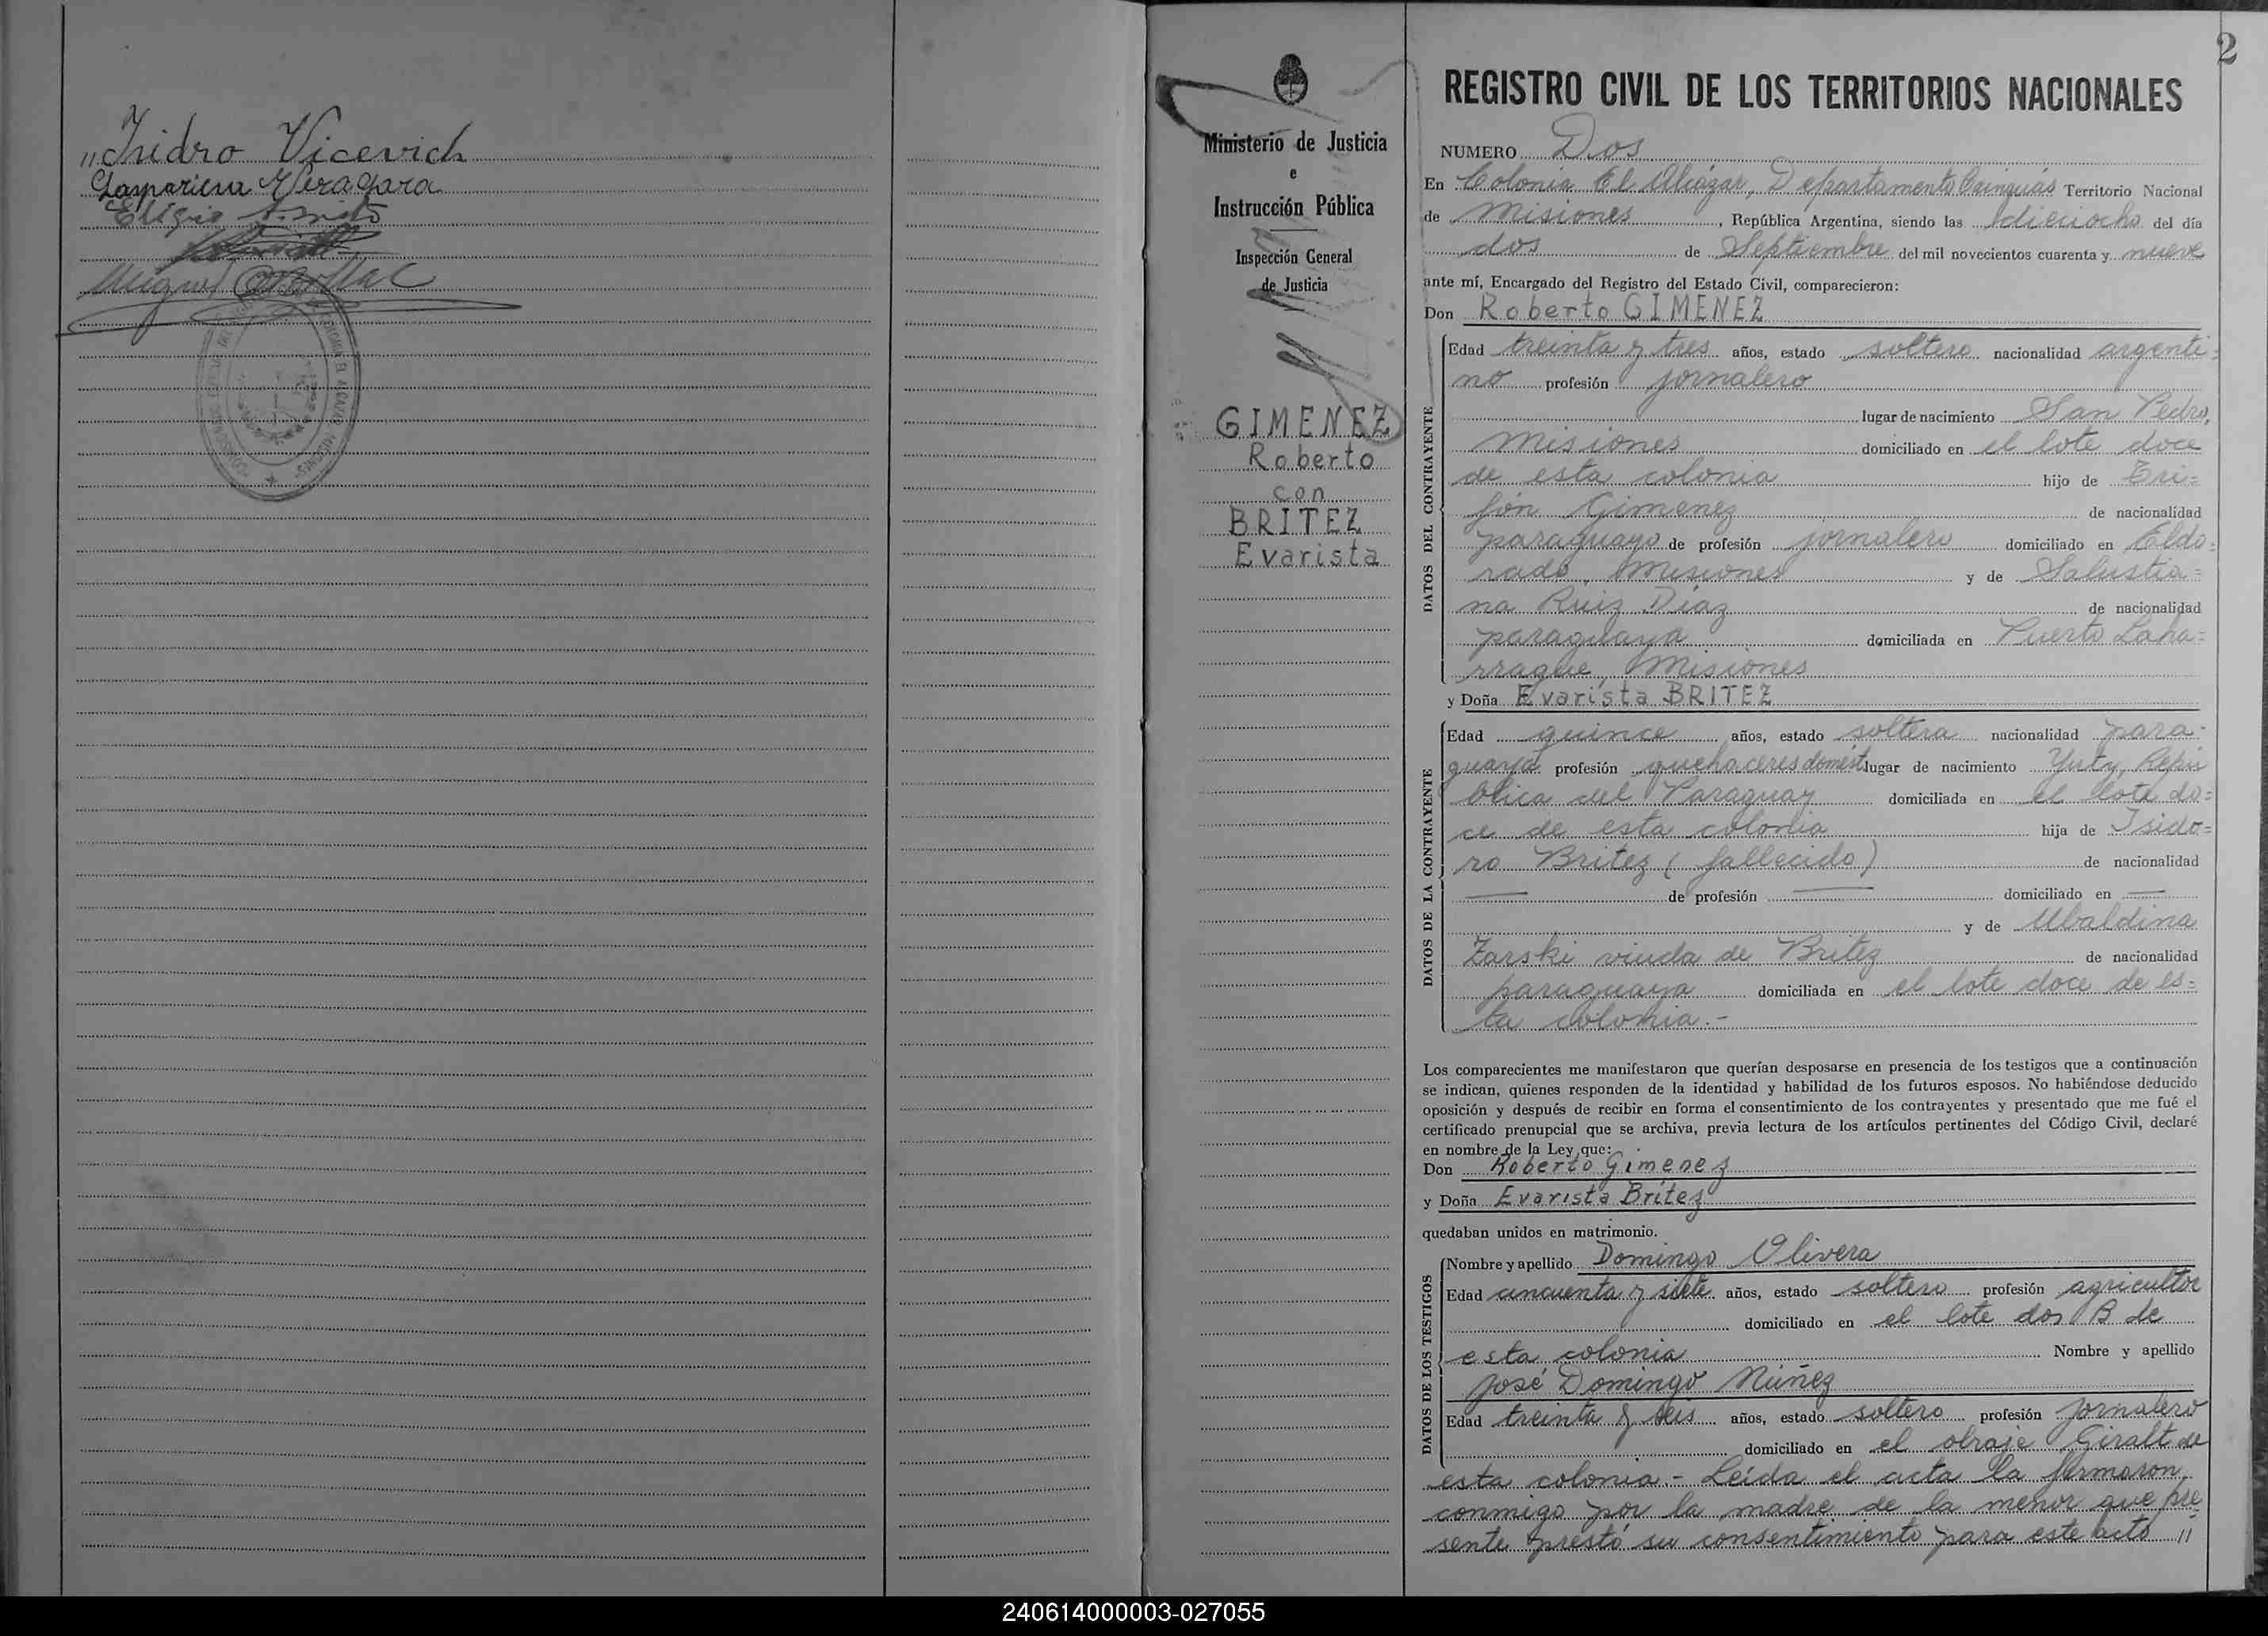 " Isidro Vicevich
Gaspariena Veragara
Eligio A. Brito
Miguel
COLONIA EL ALCAZAR MISIONES
Ministerio de Justicia
e
Instrucción Pública
Inspección General
de Justicia
GIMENEZ
Roberto
con
BRITEZ
Evarista
2
REGISTRO CIVIL DE LOS TERRITORIOS NACIONALES
NUMERO Dos
En Colonia El Alcázar, Departamento Cainguás Territorio Nacional
de Misiones, República Argentina, siendo las dieciocho del día
dos de Septiembre del mil novecientos cuarenta y nueve
ante mí, Encargado del Registro del Estado Civil, comparecieron:
Don Roberto GIMENEZ
DATOS DEL CONTRAYENTE
Edad treinta y tres años, estado soltero nacionalidad argenti=
no profesión jornalero
lugar de nacimiento San Pedro,
Misiones domiciliado en el lote doce
de esta colonia hijo de Cri=
fón Gimenez de nacionalidad
paraguayo de profesión jornalero domiciliado en Eldo=
rado, Misiones y de Salustia=
na Ruiz Diaz de nacionalidad
paraguaya domiciliada en Puerto Laha=
rrague, Misiones
y Doña Evarista BRITEZ
DATOS DE LA CONTRAYENTE
Edad quince años, estado soltera nacionalidad para=
guaya profesión quehaceres domést lugar de nacimiento Yuty, Repú
blica del Paraguay domiciliada en el lote do=
ce de esta colonia hija de Isido=
ro Britez (fallecido) de nacionalidad
— de profesión — domiciliado en —
y de Ubaldina
Zarski viuda de Britez de nacionalidad
paraguaya domiciliada en el lote doce de es=
ta colonia.-
Los comparecientes me manifestaron que querían desposarse en presencia de los testigos que a continuación
se indican, quienes responden de la identidad y habilidad de los futuros esposos. No habiéndose deducido
oposición y después de recibir en forma el consentimiento de los contrayentes y presentado que me fué el
certificado prenupcial que se archiva, previa lectura de los artículos pertinentes del Código Civil, declaré
en nombre de la Ley que:
Don Roberto Gimenez
y Doña Evarista Britez
quedaban unidos en matrimonio.
DATOS DE LOS TESTIGOS
Nombre y apellido Domingo Olivera
Edad cincuenta y siete años, estado soltero profesión agricultor
domiciliado en el lote dos B de
esta colonia Nombre y apellido
José Domingo Núñez
Edad treinta y seis años, estado soltero profesión jornalero
domiciliado en el obraje Giralt de
esta colonia.- Leída el acta la firmaron
conmigo por la madre de la menor que pre
sente prestó su consentimiento para este acto "
240614000003-027055